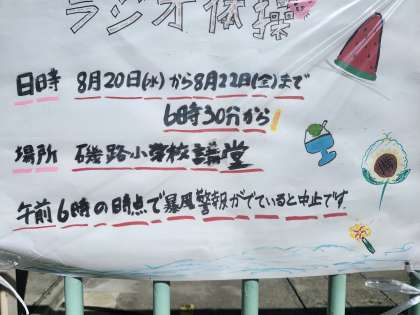 ラジオ体操
日時 8月20日(水)から8月22日(金)まで
6時30分から
場所 磯路小学校講堂
午前6時の時点で暴風警報がでていると中止です。